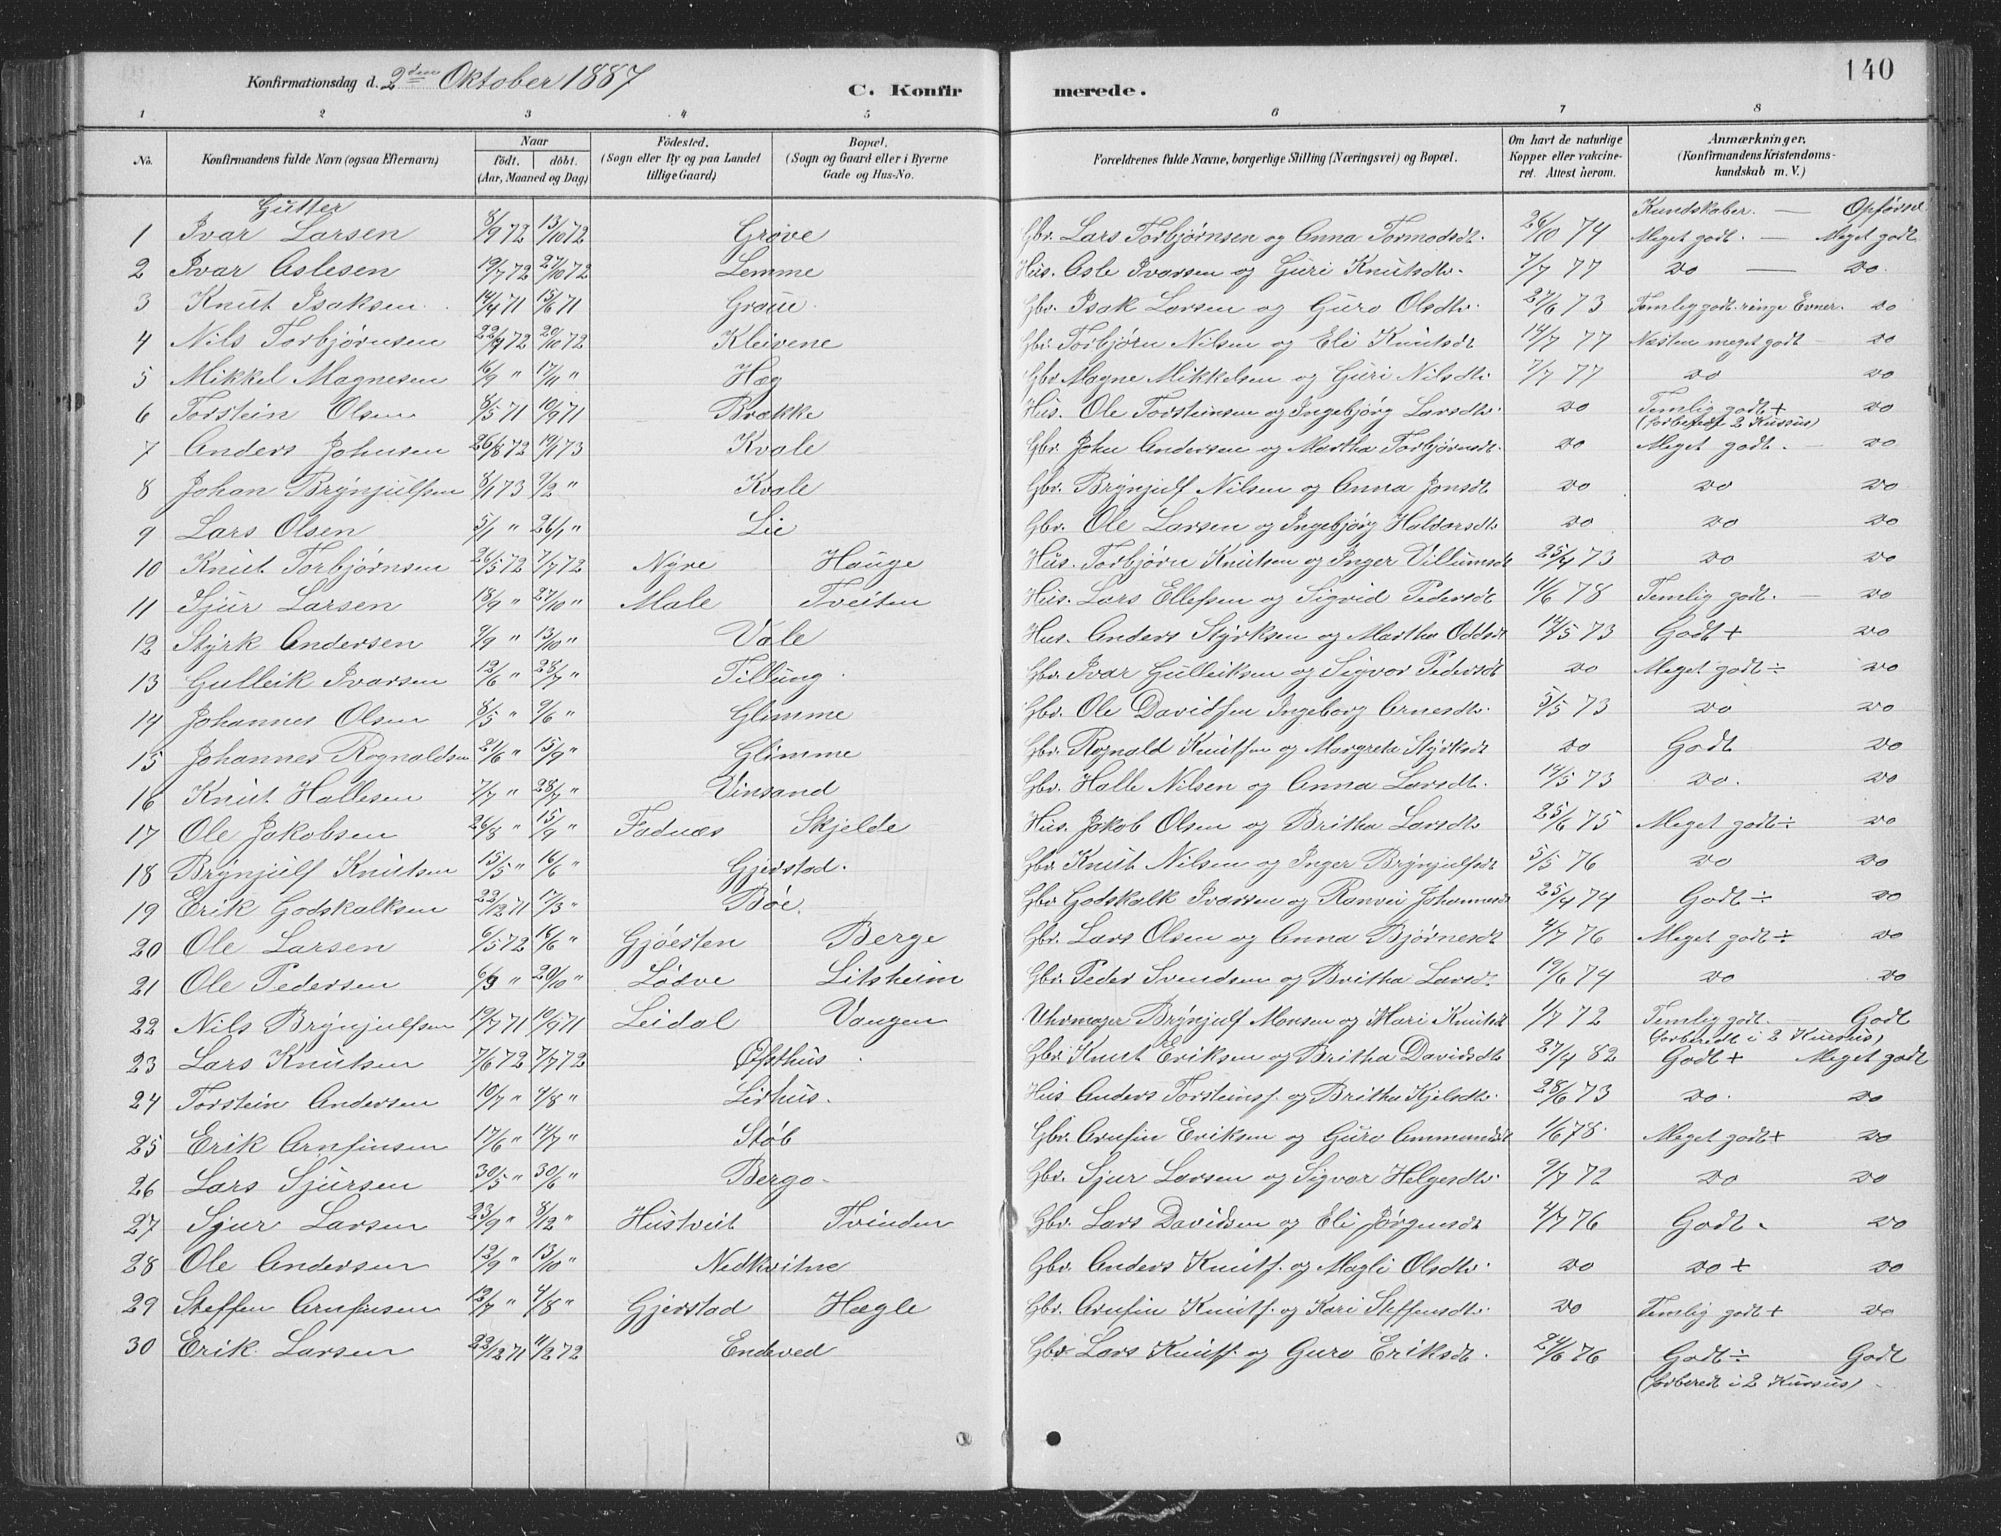 140
Konfirmationsdag d. 2den Oktober 1887
C. Konfirmerede.
1 2 3 4 5 6 7 8
No. Konfirmandens fulde Navn (ogsaa Efternavn) Naar födt. döbt. (Aar, Maaned og Dag) Födested. (Sogn eller By og paa Landet tillige Gaard) Bopæl. (Sogn og Gaard eller i Byerne Gade og Hus-No. Forældrenes fulde Navne, borgerlige Stilling (Næringsvei) og Bopæl. Om havt de naturlige Kopper eller vakcineret. Attest herom. Anmærkninger. (Konfirmandens Kristendomskundskab m. V.)
Gutter Kundskaber. — Opførsel
1 Ivar Larsen 8/9 72 13/10 72 Grove Gbr. Lars Torbjørnsen og Anna Tormodsdt. 26/10 74 Meget godt. — Meget godt
2 Ivar Aslesen 19/7 72 27/10 72 Lemme Hus. Asle Ivarsen og Guri Knutsdt. 7/7 77 do — do.
3 Knut Isaksen 14/4 71 15/6 71 Graue Gbr. Isak Larsen og Guro Olsdt. 27/6 73 Temlig godt. ringe Evner. do
4 Nils Torbjørnsen 22/9 72 20/10 72 Kleivene Gbr. Torbjørn Nilsen og Eli Knutsdt 14/7 77 Næsten meget godt — do
5 Mikkel Magnesen 16/9 " 17/11 " Hæg Gbr. Magne Mikkelsen og Guri Nilsdt. 7/7 77 do do
6 Torstein Olsen 8/5 71 10/9 71 Brække Hus. Ole Torsteinsen og Ingebjørg Larsdt. do Temlig godt + (forberedt 2 Kursus) do
7 Anders Johnsen 26/8 72 19/1 73 Kvale Gbr. John Andersen og Martha Torbjørnsdt. do Meget godt. — do
8 Johan Brynjulfsen 8/1 73 9/2 " Kvale Gbr. Brynjulf Nilsen og Anna Jonsdt do do do
9 Lars Olsen 5/1 " 26/1 " Lie Gbr. Ole Larsen og Ingebjørg Haldorsdt. do do do
10 Knut Torbjørnsen 26/5 72 7/7 72 Nyre Hauge Hus. Torbjørn Knutsen og Inger Villumsdt 25/4 73 do do
11 Sjur Larsen 18/9 " 27/10 " Male Tveiten Hus. Lars Ellefsen og Sigvid Pedersdt 11/6 78 Temlig godt. — do
12 Styrk Andersen 9/9 " 13/10 " Vale Hus. Anders Styrksen og Martha Oddsdt 14/5 73 Godt + do
13 Gulleik Ivarsen 12/6 " 28/7 " Tillung. Gbr. Ivar Gulleiksen og Sigvor Pedersdt do Meget godt ÷ do
14 Johannes Olsen 8/5 " 9/6 " Glimme Gbr. Ole Davidsen Ingeborg Arnesdt. 5/5 73 do do
15 Johannes Rognaldsen 21/6 " 15/9 " Glimme Gbr. Rognald Knutsen og Margrete Styrksdt do Godt do
16 Knut Hallesen 7/7 " 28/7 " Vinsand Gbr. Halle Nilsen og Anna Larsdt. 14/5 73 do. do
17 Ole Jakobsen 26/8 " 15/9 " Fadnæs Skjelde Hus. Jakob Olsen og Britha Larsdt. 25/6 75 Meget godt ÷ do
18 Brynjulf Knutsen 15/5 " 16/6 " Gjerstad. Gbr Knut Nilsen og Inger Brynjulfsdt 5/5 76 do do
19 Erik Godskalksen 22/12 71 17/3 " Böe. Gbr. Godskalk Ivarsen og Ranvei Johannesdt 25/4 74 Godt ÷ do
20 Ole Larsen 6/5 72 16/6 " Gjöesten Berge Gbr. Lars Olsen og Anna Bjørnesdt 4/7 76 Meget godt ÷ do
21 Ole Pedersen 6/9 " 20/10 " Lödve Litsheim Gbr. Peder Svendsen og Britha Larsdt. 19/6 74 do do
22 Nils Brynjulfsen 19/7 71 10/9 71 Leidal Vangen Uhrmager Brynjulf Monsen og Mari Knutsdt 1/7 72 Temlig godt — Godt (forberedt i 2 Kursus)
23 Lars Knutsen 7/6 72 7/7 72 Ofsthus Gbr. Knut Eriksen og Britha Davidsdt 27/4 82 Godt + Meget godt
24 Torstein Andersen 10/7 " 4/8 " Lirhus. Hus Anders Torsteins. og Britha Kjelsdt. 28/6 73 do. do
25 Erik Arnfinsen 17/6 " 14/7 " Stöb Gbr. Arnfin Eriksen og Guro Ammundsdt 1/6 78. Meget godt + do
26 Lars Sjursen 30/5 " 30/6 " Berge Gbr. Sjur Larsen og Sigvor Helgesdt. 9/7 72 do do
27 Sjur Larsen 23/9 " 8/12 " Hustveit Tvinden Gbr. Lars Davidsen og Eli Jørgensdt 4/7 76 Godt. do
28 Ole Andersen 12/9 " 13/10 " Nedkvitne Gbr. Anders Knuts. og Magli Olsdt. do do + do
29 Steffen Arnfinsen 12/7 " 4/8 " Gjerstad Hægle Gbr. Arnfin Knuts. og Kari Steffensdt. do Temlig godt + do
30 Erik Larsen 22/12 71 11/2 72 Endeved Gbr. Lars Knuts. og Guro Eriksdt. 24/6 76 Godt ÷ Godt
(forberedt i 2 Kursus)